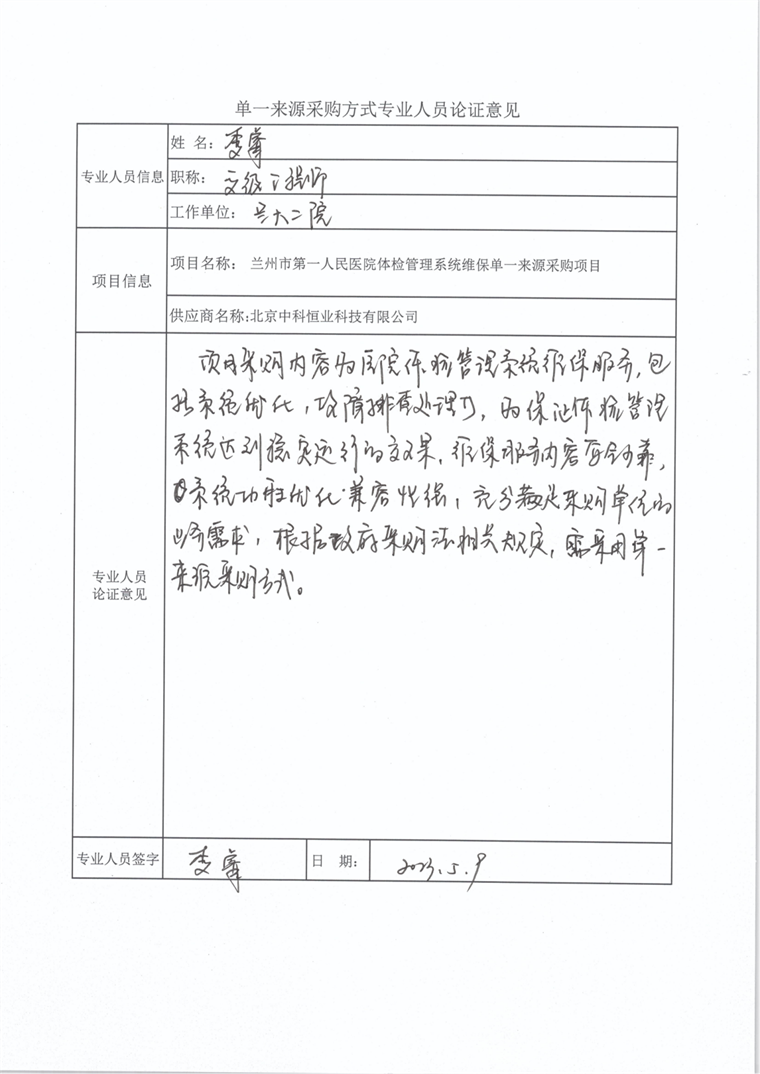 单一来源采购方式专业人员论证意见
专业人员信息
姓 名：李
职称：高级工程师
工作单位：兰大二院
项目信息
项目名称： 兰州市第一人民医院体检管理系统维保单一来源采购项目
供应商名称:北京中科恒业科技有限公司
专业人员
论证意见
项目采购内容为医院体检管理系统维保服务，包
括系统优化，故障排查处理等，为保证体检管理
系统达到稳定运行的效果，维保服务内容安全可靠，
系统功能优化兼容性强，充分满足采购单位的
业务需求，根据政府采购法相关规定，需采用单一
来源采购方式。
专业人员签字
李
日 期：
2023.5.9